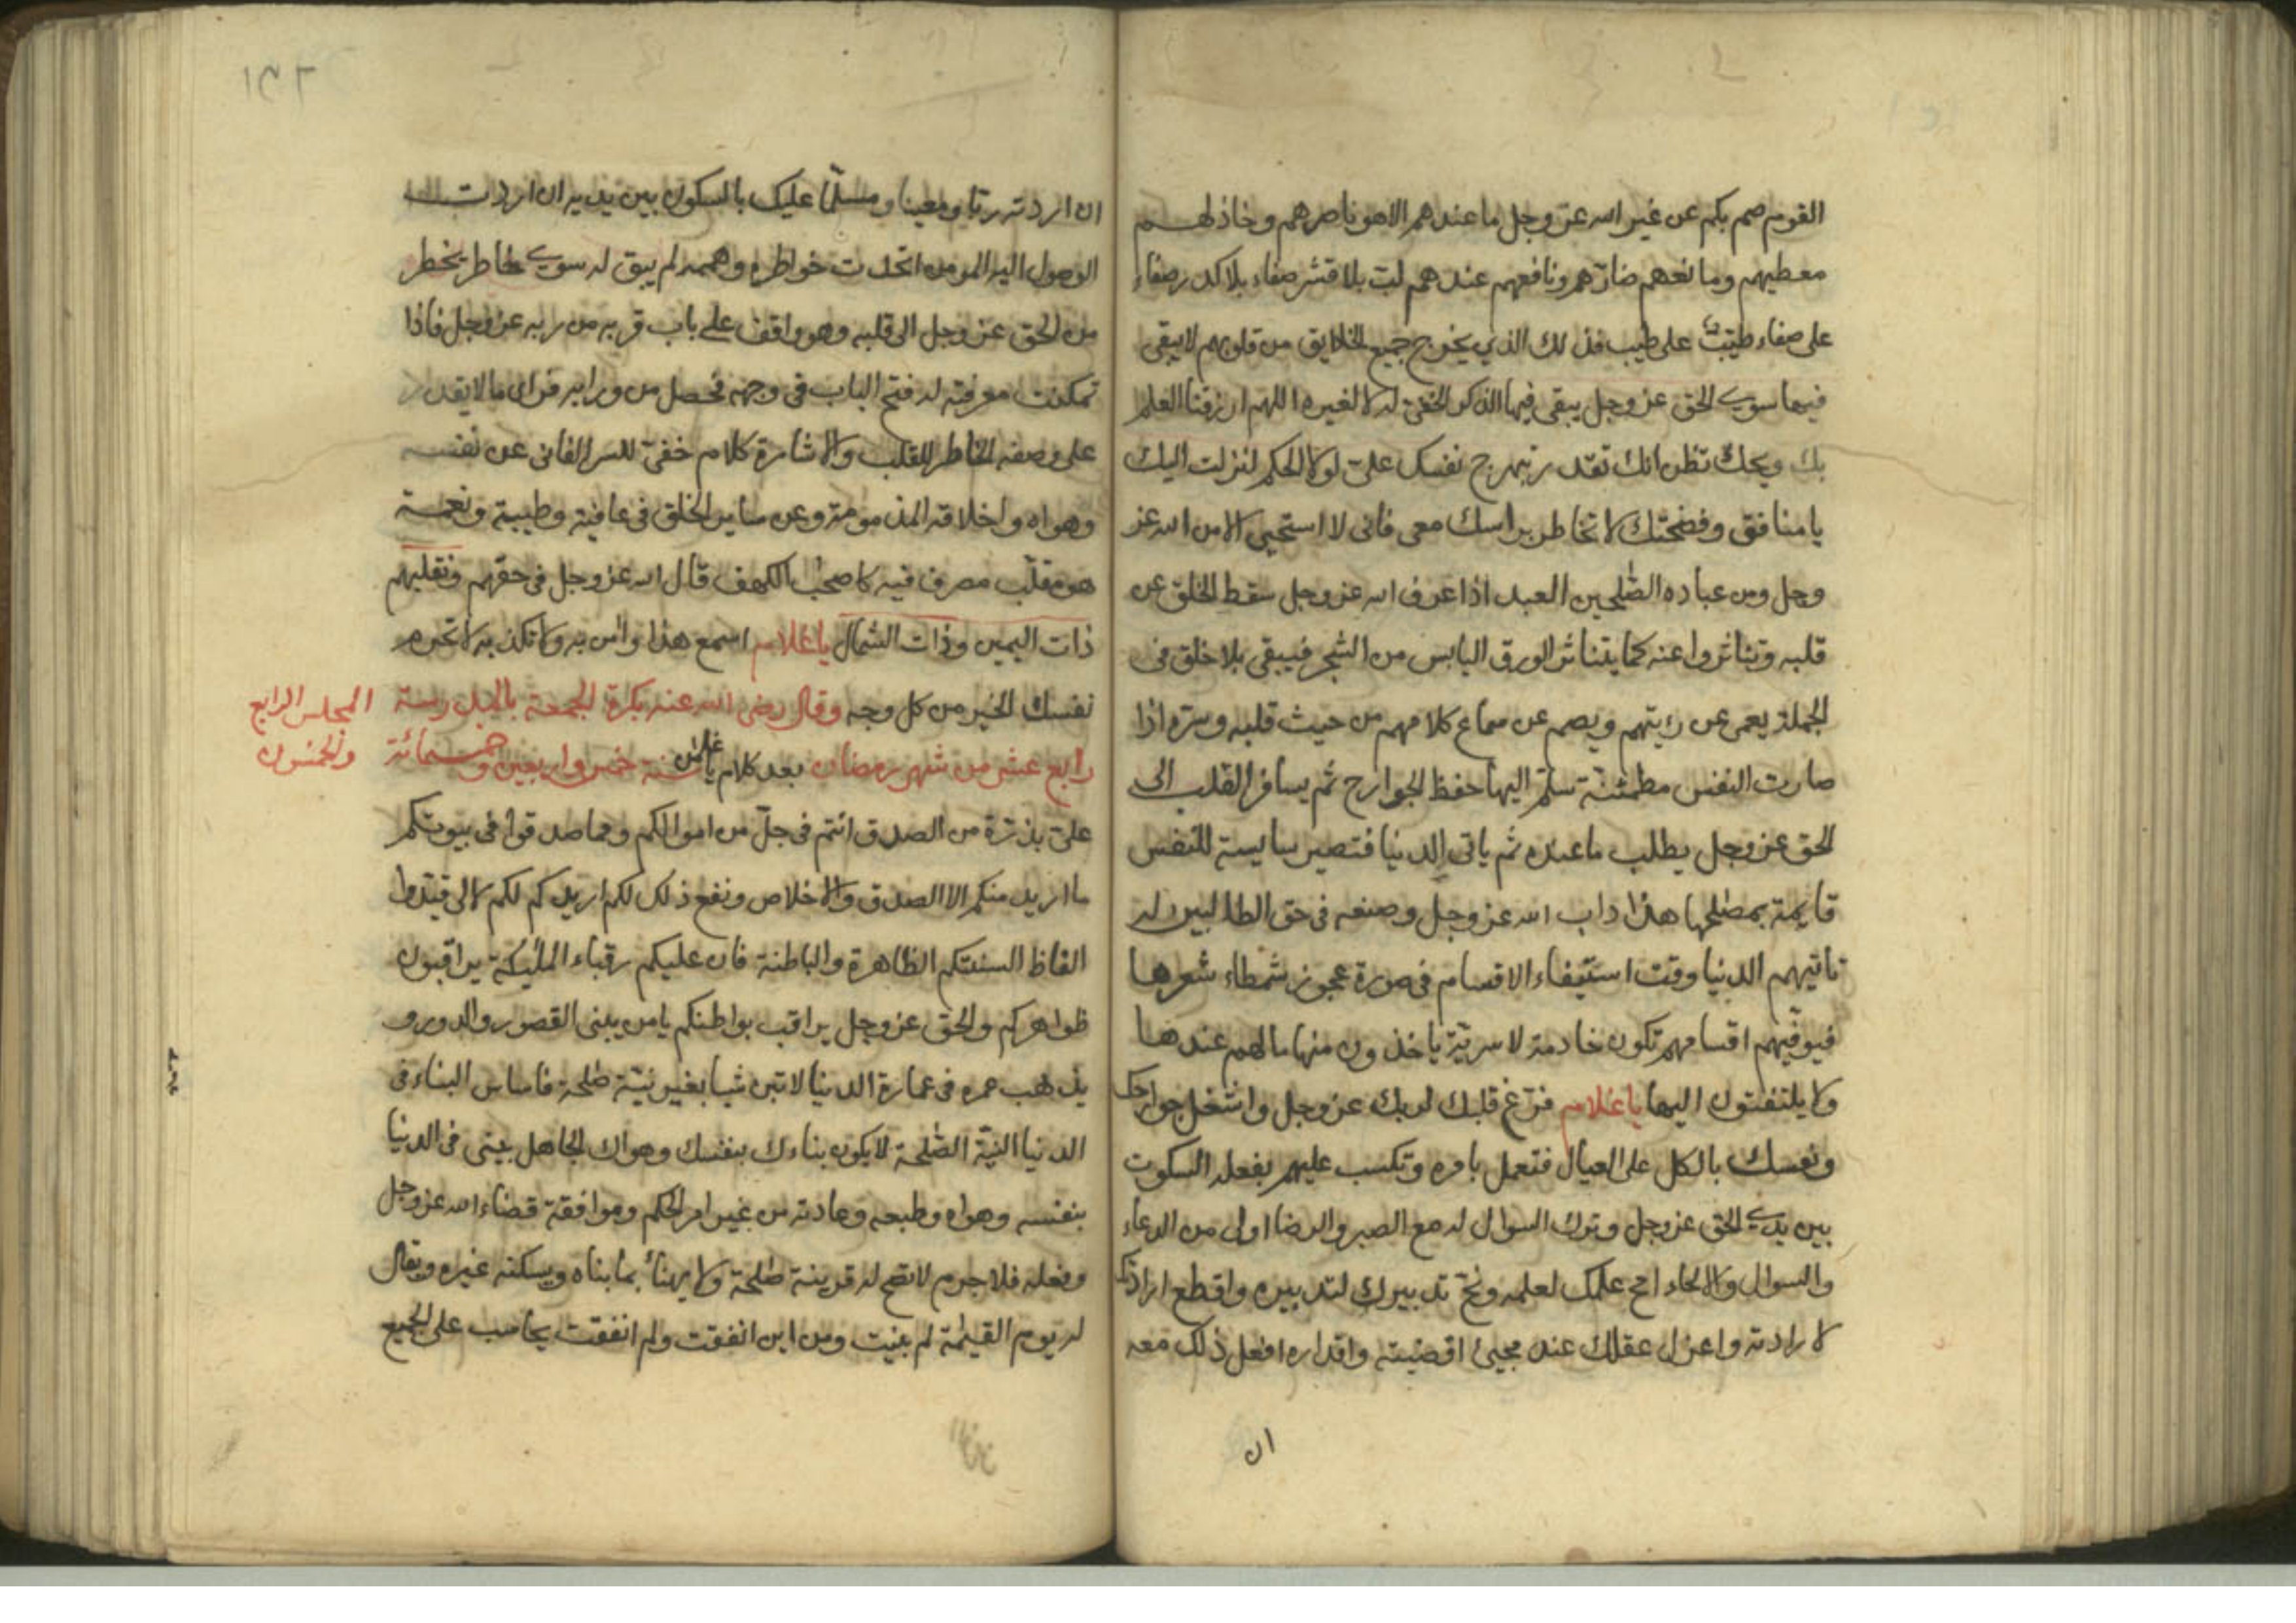 القوم صم بكم عن غير الله عز وجل ما عندهم الا هو ناصرهم وخاذلهم
معطيهم ومانعهم ضارهم ونافعهم عندهم لب بلا قشر صفاء بلا كدر صفاء
على صفاء طيب على طيب فذلك الذي يخرج جميع الخلايق من قلوبهم لا يبقى
فيها سوى الحق عز وجل يبقى فيها الذكر الخفى له لا لغيره اللهم ارزقنا العلم
بك ويحك تظن انك تقدر تبهرج نفسك على لولا الحكم لنزلت اليك
يا منافق وفضحتك لا تخاطر براسك معى فانى لا استحيى الا من الله عز
وجل ومن عباده الصلحين العبد اذا عرف الله عز وجل سقط الخلق عن
قلبه وتناثروا عنه كما يتناثر الورق اليابس من الشجر فيبقى بلا خلق فى
الجملة يعمى عن رئيتهم ويصم عن سماع كلامهم من حيث قلبه وسره اذا
صارت النفس مطمئنة سلم اليها حفظ الجوارح ثم يسافر القلب الى
الحق عز وجل يطلب ما عنده ثم ياتى الدنيا فتصير سايسة للنفس
قايمة بمصلحها هذا داب الله عز وجل وصنعه فى حق الطالبين له
تاتيهم الدنيا وقت استيفاء الاقسام فى صورة عجوز شمطاء شعرها
فيوفيهم اقسامهم تكون خادمة لا سرية ياخذون منها ما لهم عندها
ولا يلتفتون اليها يا غلام فرغ قلبك لربك عز وجل واشغل جوارحك
ونفسك بالكل على العيال فتعمل بامره وتكسب عليهم بفعله السكوت
بين يدى الحق عز وجل وترك السوال له مع الصبر والرضا اولى من الدعاء
والسوال والالحاء امح علمك لعلمه ونح تدبيرك لتدبيره واقطع ارادتك
لارادته واعزل عقلك عند مجيئ اقضيته واقداره افعل ذلك معه
ان
ان اردته ربا ومعينا ومسلما عليك بالسكون بين يديه ان اردت
الوصول اليه المومن اتحدت خواطره وهممه لم يبق له سوى خاطر يخطر
من الحق عز وجل الى قلبه وهو واقف على باب قربه من ربه عز وجل فاذا
تمكنت معرفته له فتح الباب فى وجهه فحصل من ورايه فراى ما لا يقدر
على وصفه الخاطر للقلب والاشارة كلام خفى للسر الفانى عن نفسه
وهواه واخلاقه المذمومة وعن ساير الخلق فى عافية وطيبة ونعمة
هو مقلب مصرف فيه كاصحب الكهف قال الله عز وجل فى حقهم ونقلبهم
ذات اليمين وذات الشمال يا غلام اسمع هذا وامن به ولا تكذبه لا تحرم
نفسك الخير من كل وجه وقال رضى الله عنه بكرة الجمعة بالمدرسة
المجلس الرابع
والخمسون
رابع عشر من شهر رمضان بعد كلام يا غلام سنة خمس واربعين وخمسمائة
على بذرة من الصدق انتم فى جل من اموالكم ومما صدقوا فى بيوتكم
ما اريد منكم الا الصدق والاخلاص ونفع ذلك لكم اريدكم لكم لا لى قيدوا
الفاظ السنتكم الظاهرة والباطنة فان عليكم رقباء المليكة يراقبون
ظواهركم والحق عز وجل يراقب بواطنكم يا من يبنى القصور والدور و
يذهب عمره فى عمارة الدنيا لا تبن شيا بغير نية صلحة فاساس البناء فى
الدنيا النية الصلحة لا يكون بناءك بنفسك وهواك الجاهل يبنى فى الدنيا
بنفسه وهواه وطبعه وعادته من غير امر الحكم وموافقة قضاء الله عز وجل
وفعله فلا جرم لا تصح له قرينة صلحة ولا يهنأ بما بناه ويسكنه غيره ويقال
له يوم القيمة لم بنيت ومن اين انفقت ولم انفقت يحاسب على الجميع